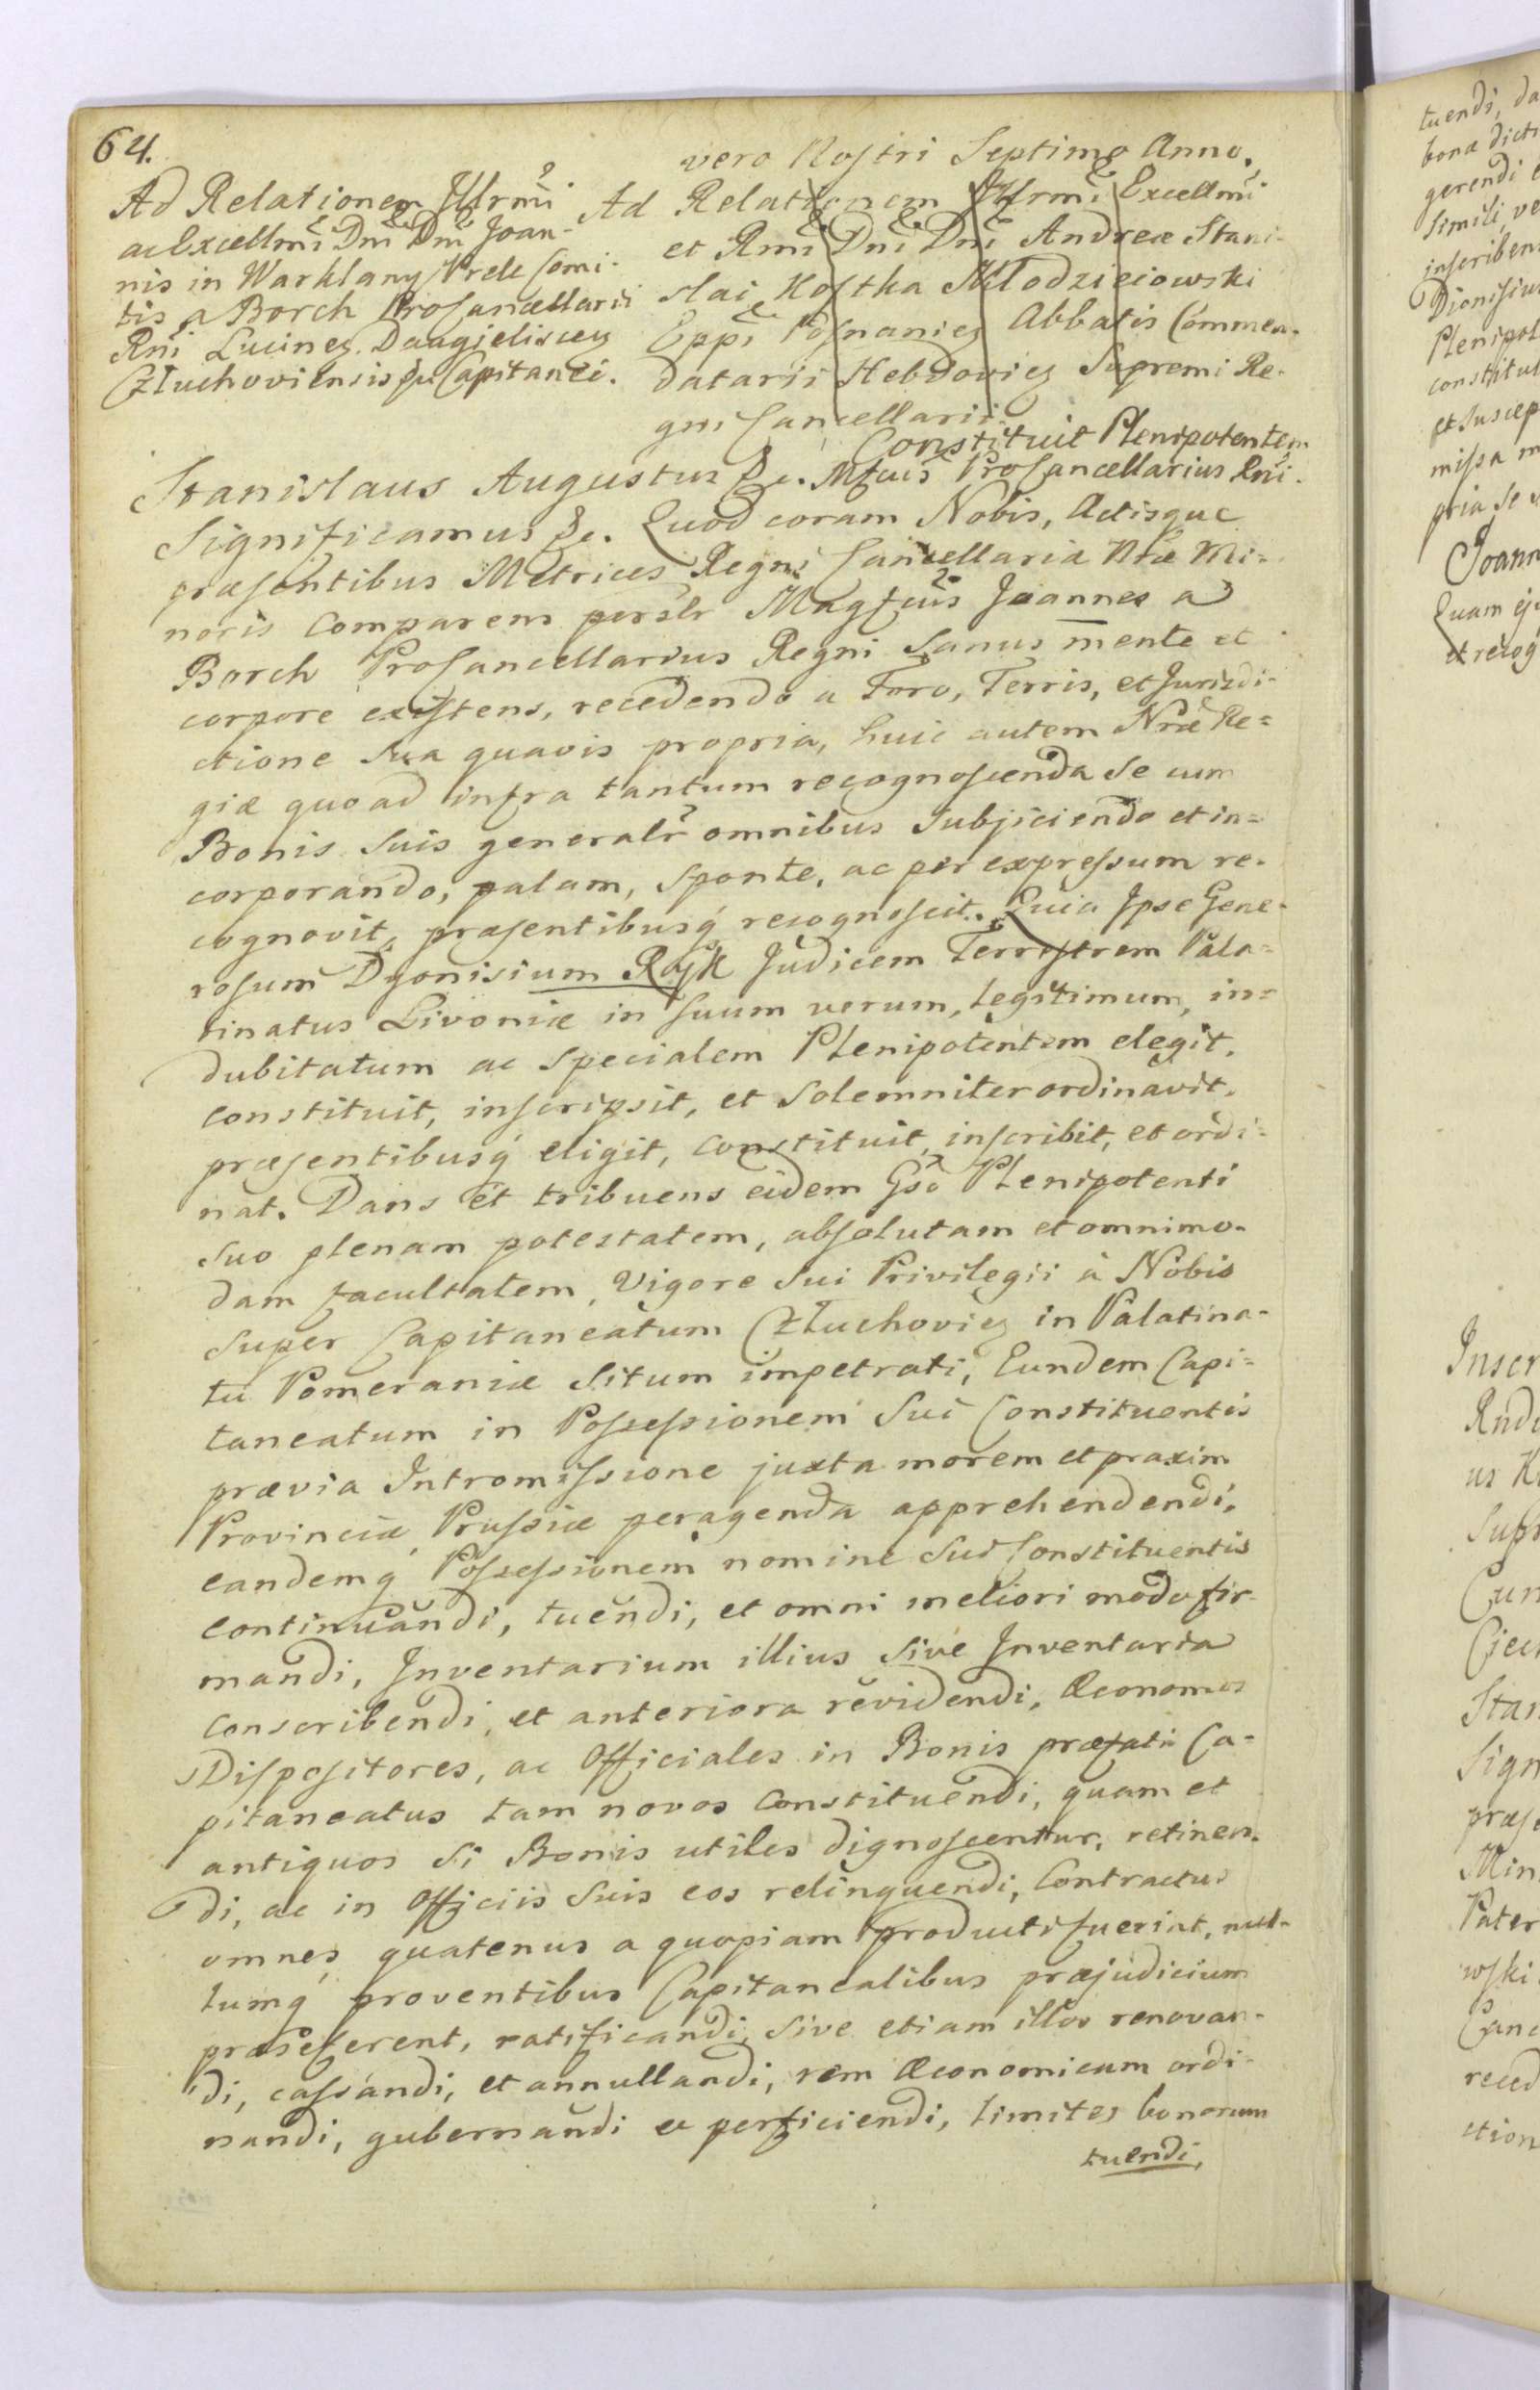 64.
vero Nostri Septimo Anno.
Ad Relationem Illrmi
ac Excellmi Dni Dni Joan-
nis in Warklany Prele Comi-
tis a Borch ProCancellarii
Rni Lucinen. Daagielisceń
Człuchoviensis &c Capitanei.
Ad Relationem Illrmi Excellmi
et Rmi Dni Dni Andreæ Stani-
slai Kostka Młodzieiowski
Eppi Posnanień Abbatis Commen-
datarii Hebdovień Supremi Re-
gni Cancellarii.
Constituit Plenipotentem
Mfcus ProCancellarius Rni.
Stanislaus Augustus &c.
Significamus &c. Quod coram Nobis, Actisque
præsentibus Metrices Regni Cancellaria Nræ Mi-
noris Comparens persłr Magfcus Joannes a
Borch ProCancellarius Regni Sanus mente et
corpore existens, recedendo a Foro, Terris, et Jurisdi-
ctione Sua quavis propria, huic autem Nræ Re-
giæ quoad infra tantum recognoscenda Se cum
Bonis Suis generalr omnibus Subjiciendo et in-
corporando, palam, Sponte, ac per expressum re-
cognovit, præsentibusq́ recognoscit. Quia Ipse Gene-
rosum Dyonisium Rajk Judicem Terrestrem Pala-
tinatus Livoniæ in Suum verum, legitimum, in-
dubitatum ac Specialem Plenipotentem elegit,
constituit, inscripsit, et Solemniter ordinavit,
præsentibusq́ eligit, constituit, inscribit, et ordi-
nat. Dans et tribuens eidem Gso Plenipotenti
Suo plenam potestatem, absolutam et omnimo-
dam facultatem, Vigore Sui Privilegii à Nobis
Super Capitaneatum Człuchovień in Palatina-
tu Pomeraniæ Situm impetrati, Eundem Capi-
taneatum in Possessionem Sui Constituentis
prævia Intromissione juxta morem et praxim
Provinciæ Prussiæ peragenda apprehendendi,
eandemq́ Possessionem nomine Sui Constituentis
continuandi, tuendi, et omni meliori modo fir-
mandi, Inventarium illius Sive Inventaria
conscribendi, et anteriora revidendi, Œconomos
Dispositores, ac Officiales in Bonis præfati Ca-
pitaneatus tam novos constituendi, quam et
antiquos Si Bonis utiles dignoscentur, retinen-
di, ac in Officiis Suis eos relinquendi, Contractus
omnes, quatenus a quopiam producti fuerint, nul-
lumq́ proventibus Capitanealibus præjudicium
præseferent, ratificandi, Sive etiam illos renovan-
di, cassandi, et annullandi, rem Œconomicam ordi-
nandi, gubernandi et perficiendi, limites bonorum
tuendi,
tuendi, da
bona dict
gerendi e
Simili, ve
inscriben
Dionisiu
Plenipot
constitut
et Suscep
missa m
pria Se
Joann
Quam ej
et recog
Inscr
Rndu
us K
Supr
Cum
Ejec
Stan
Sign
præs
Min
Pater
wski
Canc
reced
ction